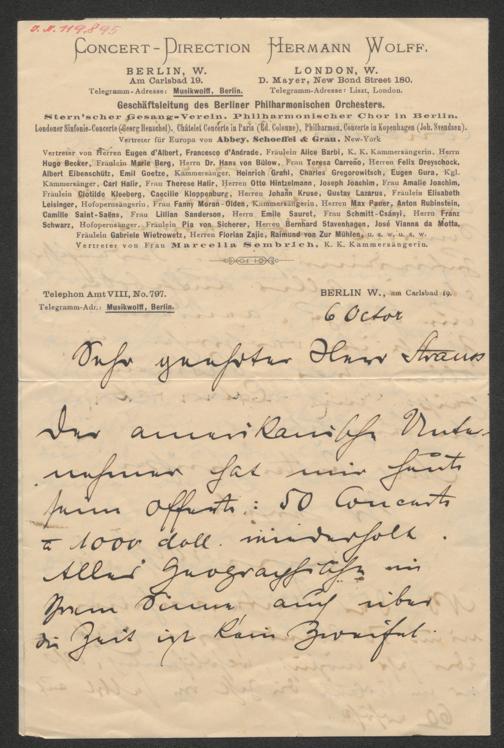 J. N. 119.895
CONCERT-DIRECTION HERMANN WOLFF.
BERLIN, W.
Am Carlsbad 19.
Telegramm-Adresse: Musikwolff, Berlin.
LONDON, W.
D. Mayer, New Bond Street 180.
Telegramm-Adresse: Liszt, London.
Geschäftsleitung des Berliner Philharmonischen Orchesters.
Stern'scher Gesang-Verein. Philharmonischer Chor in Berlin.
Londoner Sinfonie-Concerte (Georg Henschel), Châtelet Concerte in Paris (Ed. Colonne), Philharmon. Concerte in Kopenhagen (Joh. Svendsen).
Vertreter für Europa von Abbey, Schoeffel & Grau, New-York
Vertreter von Herren Eugen d'Albert, Francesco d'Andrade, Fräulein Alice Barbi, K. K. Kammersängerin, Herrn
Hugo Becker, Fräulein Marie Berg, Herrn Dr. Hans von Bülow, Frau Teresa Carreño, Herren Felix Dreyschock,
Albert Eibenschütz, Emil Goetze, Kammersänger, Heinrich Grahl, Charles Gregorowitsch, Eugen Gura, Kgl.
Kammersänger, Carl Halir, Frau Therese Halir, Herren Otto Hintzelmann, Joseph Joachim, Frau Amalie Joachim,
Fräulein Clotilde Kleeberg, Caecilie Kloppenburg, Herren Johann Kruse, Gustav Lazarus, Fräulein Elisabeth
Leisinger, Hofopernsängerin, Frau Fanny Moran-Olden, Kammersängerin, Herren Max Pauer, Anton Rubinstein,
Camille Saint-Saëns, Frau Lillian Sanderson, Herrn Emile Sauret, Frau Schmitt-Csányi, Herrn Franz
Schwarz, Hofopernsänger, Fräulein Pia von Sicherer, Herren Bernhard Stavenhagen, José Vianna da Motta,
Fräulein Gabriele Wietrowetz, Herren Florian Zajic, Raimund von Zur Mühlen, u. s. w. u. s. w.
Vertreter von Frau Marcella Sembrich, K. K. Kammersängerin.
Telephon Amt VIII, No. 797.
Telegramm-Adr.: Musikwolff, Berlin.
BERLIN W., am Carlsbad 19.
6 Octor
Sehr geehrter Herr Strauss
Der amerikanische Unter-
nehmer hat mir heute
seine Offerte: 50 Concerte
à 1000 doll. wiederholt.
Alles Geographische in
Ihrem Sinne auch über
die Zeit ist kein Zweifel.